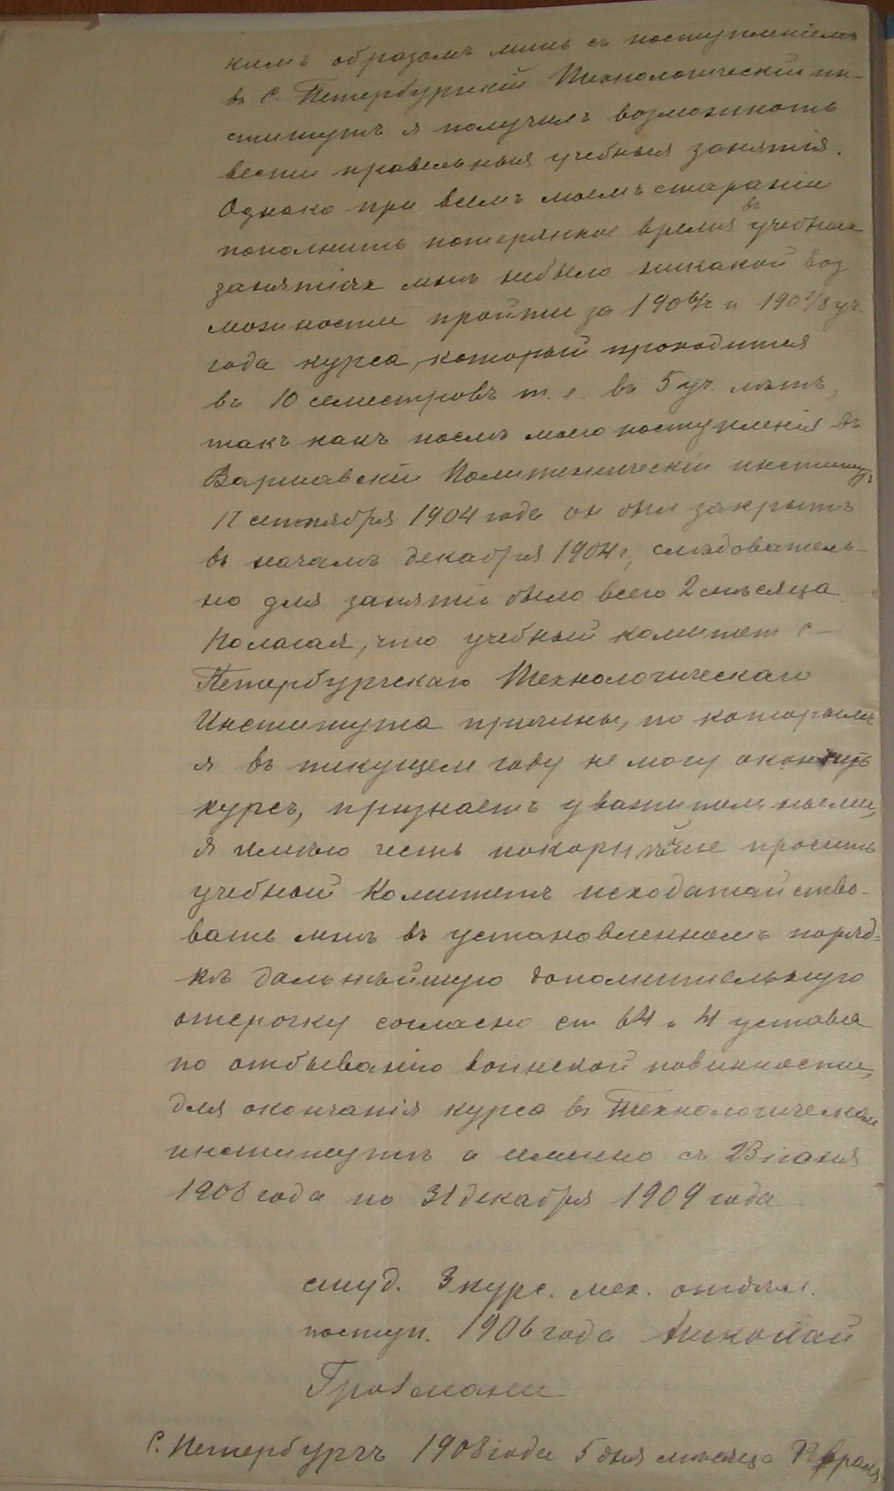 кимъ образомъ лишь съ поступленіемъ
въ С. Петербургкій Технологическій ин-
ститутъ я получилъ возможность
вести правельныя учебныя занятія.
Однако при всемъ моемъ стараніи
пополнить потерянное время въ учебныхъ
занятіяхъ мнѣ небыло никакой воз
можности пройти за 1906/7 и 1907/8 уч.
года курса, который проходится
въ 10 семестровъ т. е. въ 5 уч. лѣтъ,
такъ какъ послѣ моего поступленія въ
Варшавскій Политехническій институтъ
17 сентября 1904 года он был закрытъ
въ началѣ декабря 1904 г, слѣдователь-
но для занятій было всего 2 мѣсяца
Полагая, что учебный комитетъ С-
Петербургскаго Технологическаго
Института причины, по которымъ
я въ текущем году не могу окончить
курсъ, признаетъ уважительными,
я имѣю честь покорнѣйше просить
учебный Комитетъ исходатайство-
вать мнѣ въ установленномъ поряд-
кѣ дальнѣйшую дополнительную
отсрочку согласно ст 64 п 4 устава
по отбыванію воинской повинности,
для окончанія курса въ Технологическом
институтѣ а именно съ 23 іюня
1908 года по 31 декабря 1909 года
студ. 3 курс. мех. отдѣл.
поступ. 1906 года Николай
С. Петербургъ 1908 года 5 дня мѣсяца Февраля